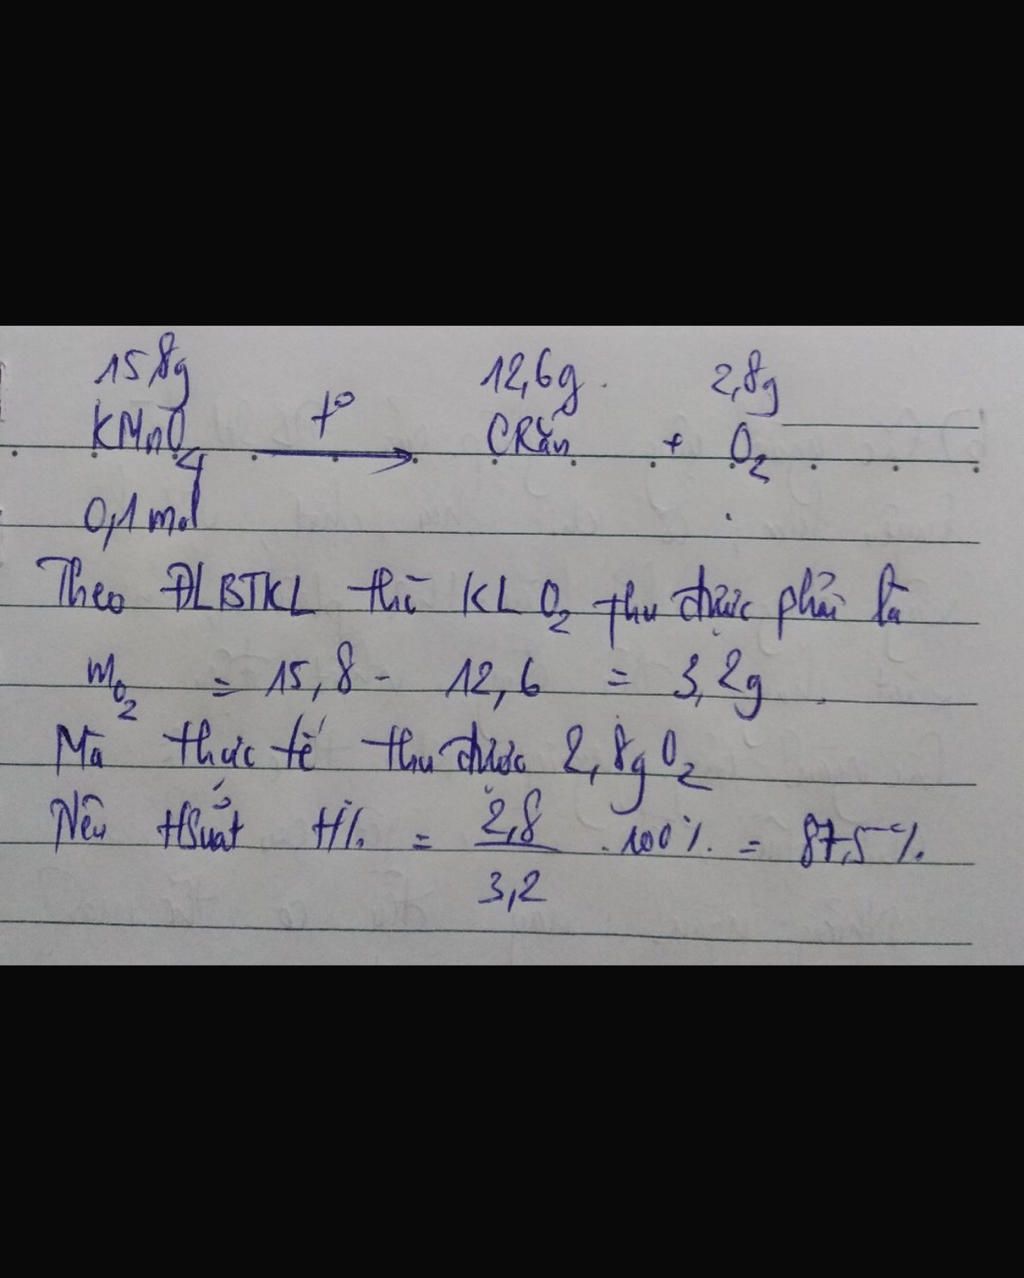 15,8g 12,6g 2,8g
KMnO4 t° CRắn + O2
0,1 mol
Theo ĐLBTKL thì KL O2 thu được phải là
mO2 = 15,8 - 12,6 = 3,2g
Mà thực tế thu được 2,8g O2
Nên HSuất H% = 2,8 / 3,2 . 100% = 87,5%